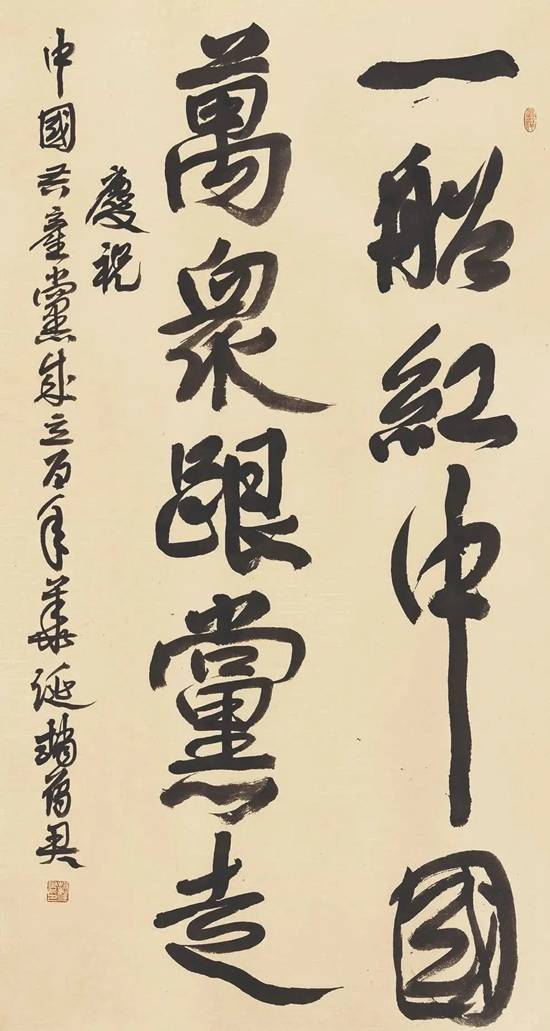 一船紅中國
萬眾跟黨走
慶祝
中國共產黨成立百年華誕趙